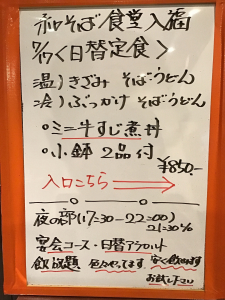 そば/食堂 入福
<日替定食>
温)きざみ そば・うどん
冷)ぶっかけ そば・うどん
○ミニ牛すじ煮丼
○小鉢 2品付
¥850-
入口こちら→
夜の部(17:30-22:00)
宴会コース・日替アラカルト
飲放題 色々やってます。安く飲めます
お試し下さい